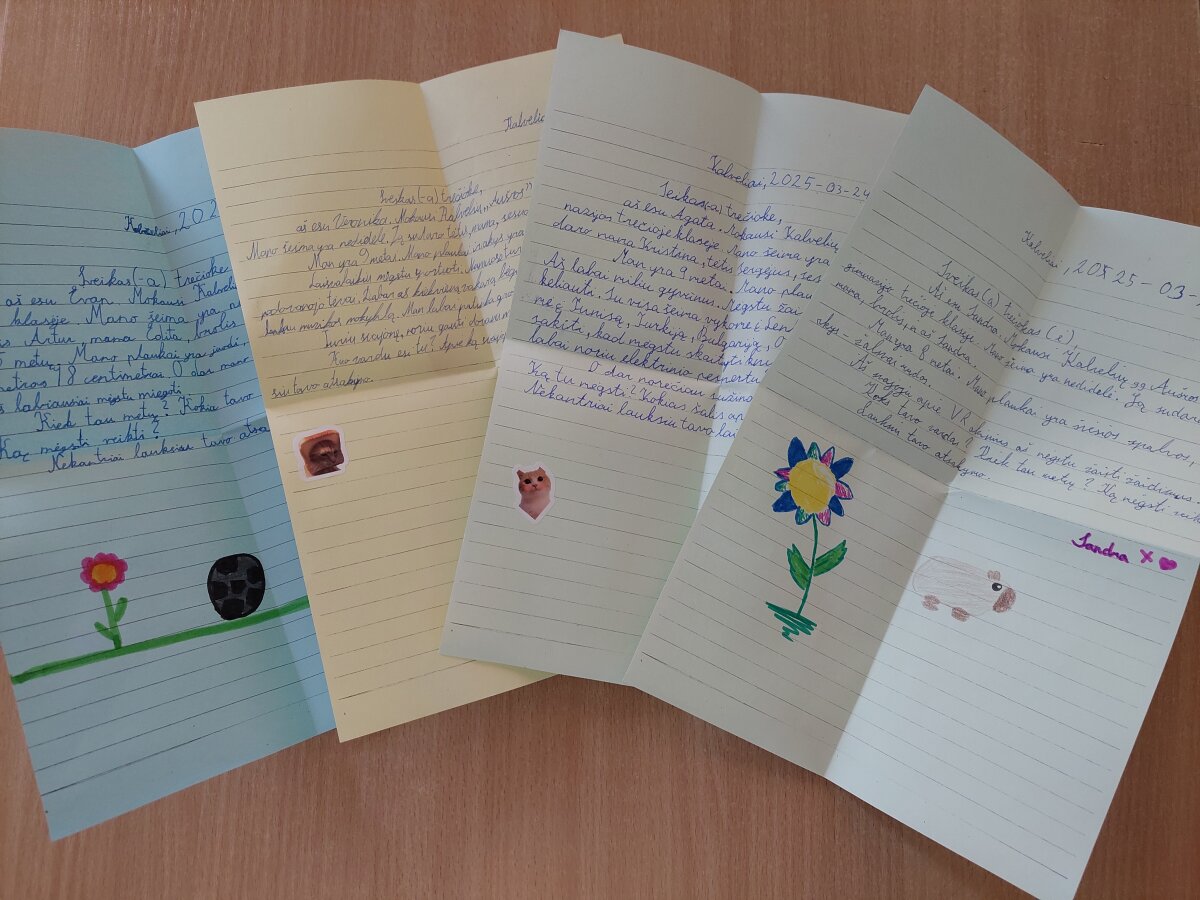 Kalveliai, 202
Sveikas(-a) trečioke,
aš esu Evan. Mokausi Kalvelių
klasėje. Mano šeima yra
is Artur, mama Edita, brolis
5 metų. Mano plaukai yra juodi,
metras 18 centimetrai. O dar mano
s labiausiai mėgstu miegoti.
Kiek tau metų? Kokia tavo
Ką mėgsti veikti?
Nekantriai lauksiu tavo atsa
Kalveliai
Sveikas(-a) trečioke,
aš esu Veronika. Mokausi Kalvelių „Aušros"
Mano šeima yra nedidelė. Ją sudaro tėtis, mama, sesuo
Man yra 9 metai. Mano plaukai
Laisvalaikiu mėgstu
tėvai. Labai aš kiekvieną vakarą
muzikos mokyklą. Man labai patinka
noriu gauti dovanų
Kuo vardu esi tu? Apie ką svajoji
siu tavo atsakymo.
Kalveliai, 2025-03-24
Seikas(-a) trečioke,
aš esu Agata. Mokausi Kalvelių
nazijos trečioje klasėje. Mano šeima yra
daro mama Kristina, tėtis Sergėjus, ses
Man yra 9 metai. Mano plau
Aš labai myliu gyvūnus. Mėgstu žai
keliauti. Su visa šeima vykome į Len
mę, į Tunisą, Turkiją, Bulgariją, O
sakyti, kad mėgstu skaityti
labai noriu elektrinio
O dar norėčiau sužino
Ką tu mėgsti? Kokias šalis ap
Nekantriai lauksiu tavo lai
Kalveliai, 2025-03-
Sveikas(a) trečiokas(ė)
Aš esu Sandra. Mokausi Kalvelių gg. Aušros
gimnazijo trečioje klasėje. Mano šeima yra nedidelė. Ją sudaro
mama, brolis, n aš Sandra.
Man yra 8 metai. Mano plaukai yra šviesios spalvos,
akys žalsvai rudos.
Aš svajoju apie VR akinius aš mėgstu žaisti žaidimus.
Koks tavo vardas? Kiek tau metų? Ką mėgsti veik
Lauksiu tavo atsakymo.
Sandra X